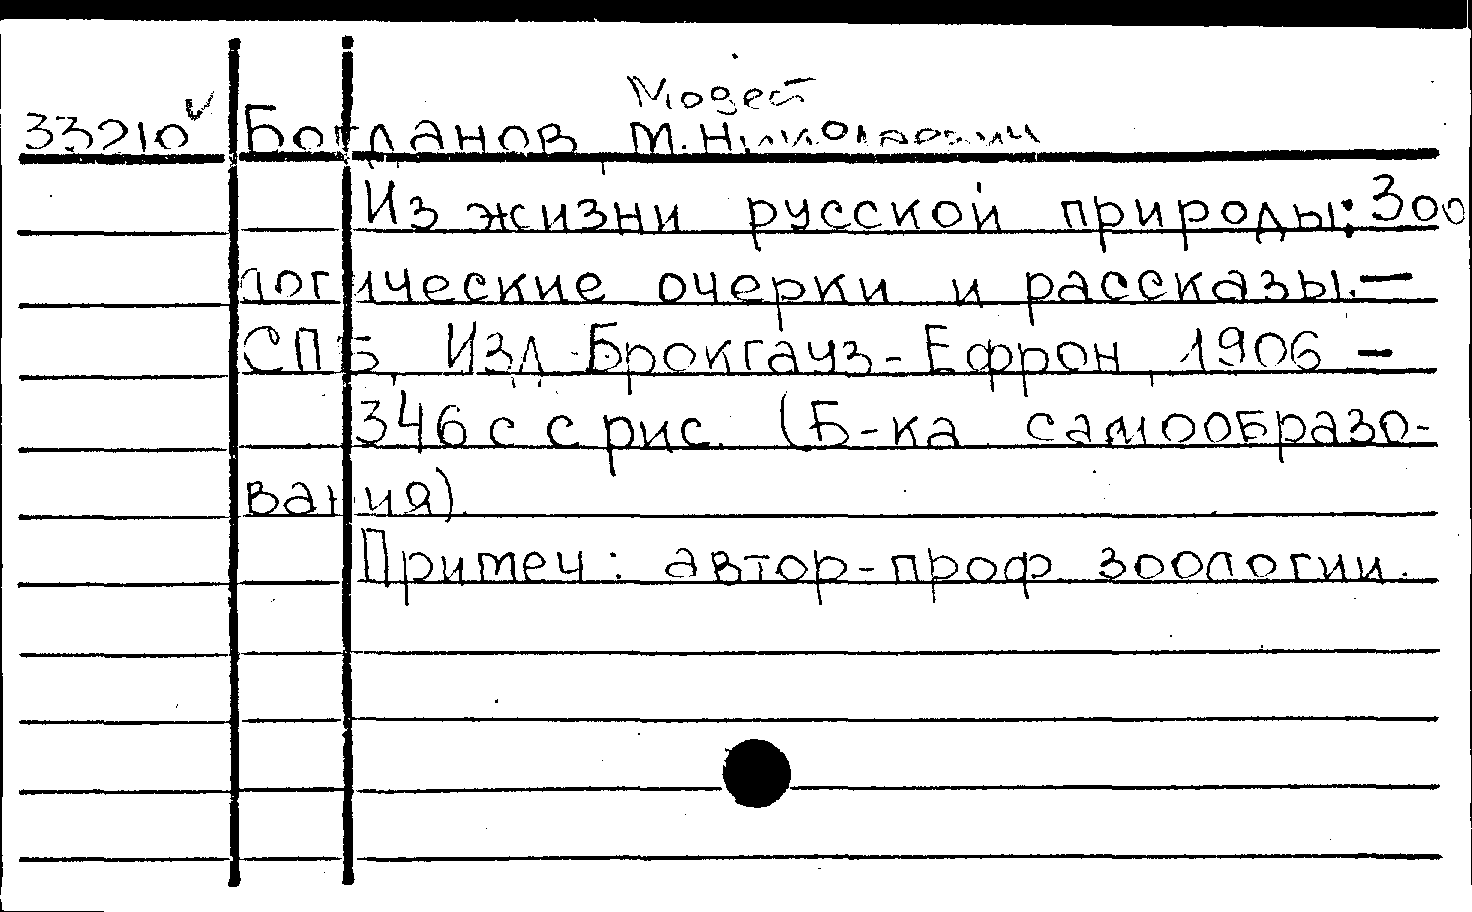 Модест
33210 Богданов, М. Николаевич
Из жизни русской природы: Зоо
логические очерки и рассказы.—
СПБ, Изд. Брокгауз-Ефрон, 1906 —
346 с с рис. (Б-ка самообразо-
вания).
Примеч: автор-проф. зоологии.